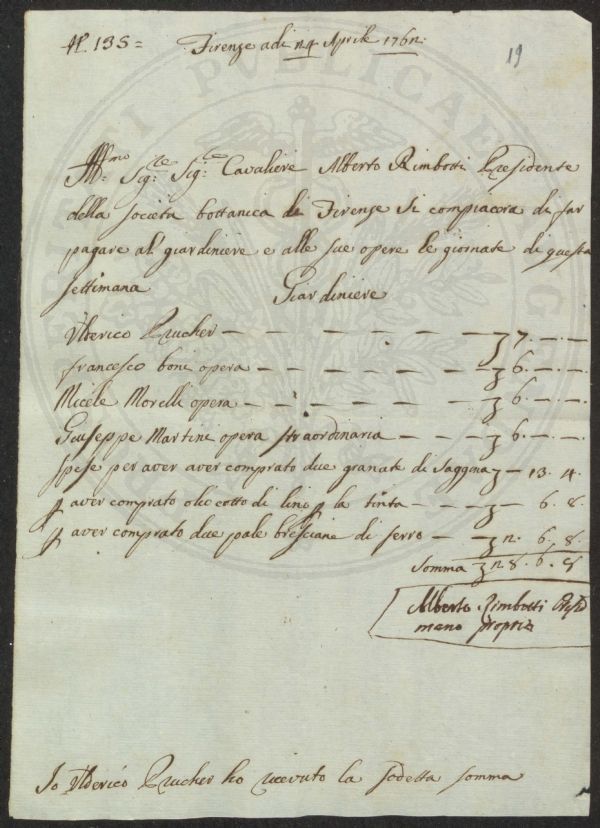 N. 135 = Firenze adi 24 Aprile 1762.
19
Ill.mo Sig.re Sig.re Cavaliere Alberto Rimbotti Presidente
della Società bottanica di Firenze si compiacerà di far
pagare al giardiniere e alle sue opere le giornate di questa
settimana Giardiniere
Ulderico Prucher — — — — — — — 7. —. —.
francesco boni opera — — — — — — 6. —. —.
Micele Morelli opera — — — — — — 6. —. —.
Giuseppe Martini opera straordinaria — — — 6. —. —.
spese per aver aver comprato due granate di saggina — 13. 4.
p aver comprato olio cotto di lino p la tinta — — — 6. 8.
p aver comprato due pale bresciane di ferro — — 2. 6. 8.
Somma 28. 6. 8
Alberto Rimbotti Presid
mano propria
Io Ulderico Prucher ho riceuuto la sodetta somma
PUBLICAE